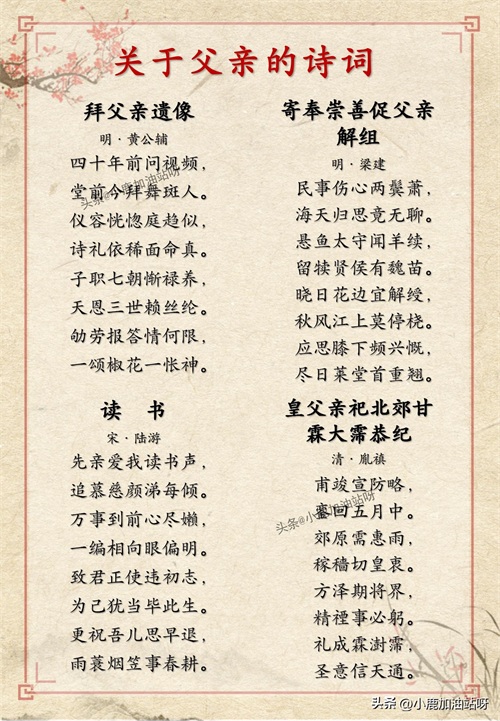 关于父亲的诗词
拜父亲遗像
明·黄公辅
四十年前问视频，
堂前今拜舞斑人。
仪容恍惚庭趋似，
诗礼依稀面命真。
子职七朝惭禄养，
天恩三世赖丝纶。
劬劳报答情何限，
一颂椒花一怅神。
寄奉崇善促父亲
解组
明·梁建
民事伤心两鬓萧，
海天归思竟无聊。
悬鱼太守闻羊续，
留犊贤侯有魏苗。
晓日花边宜解绶，
秋风江上莫停桡。
应思膝下频兴慨，
尽日莱堂首重翘。
读 书
宋·陆游
先亲爱我读书声，
追慕慈颜涕每倾。
万事到前心尽嬾，
一编相向眼偏明。
致君正使违初志，
为己犹当毕此生。
更祝吾儿思早退，
雨蓑烟笠事春耕。
皇父亲祀北郊甘
霖大霈恭纪
清·胤禛
甫竣宣防略，
銮回五月中。
郊原需惠雨，
稼穑切皇衷。
方泽期将界，
精禋事必躬。
礼成霖澍霈，
圣意信天通。
头条@小鹿加油站呀
头条@小鹿加油站呀
头条@小鹿加油站呀